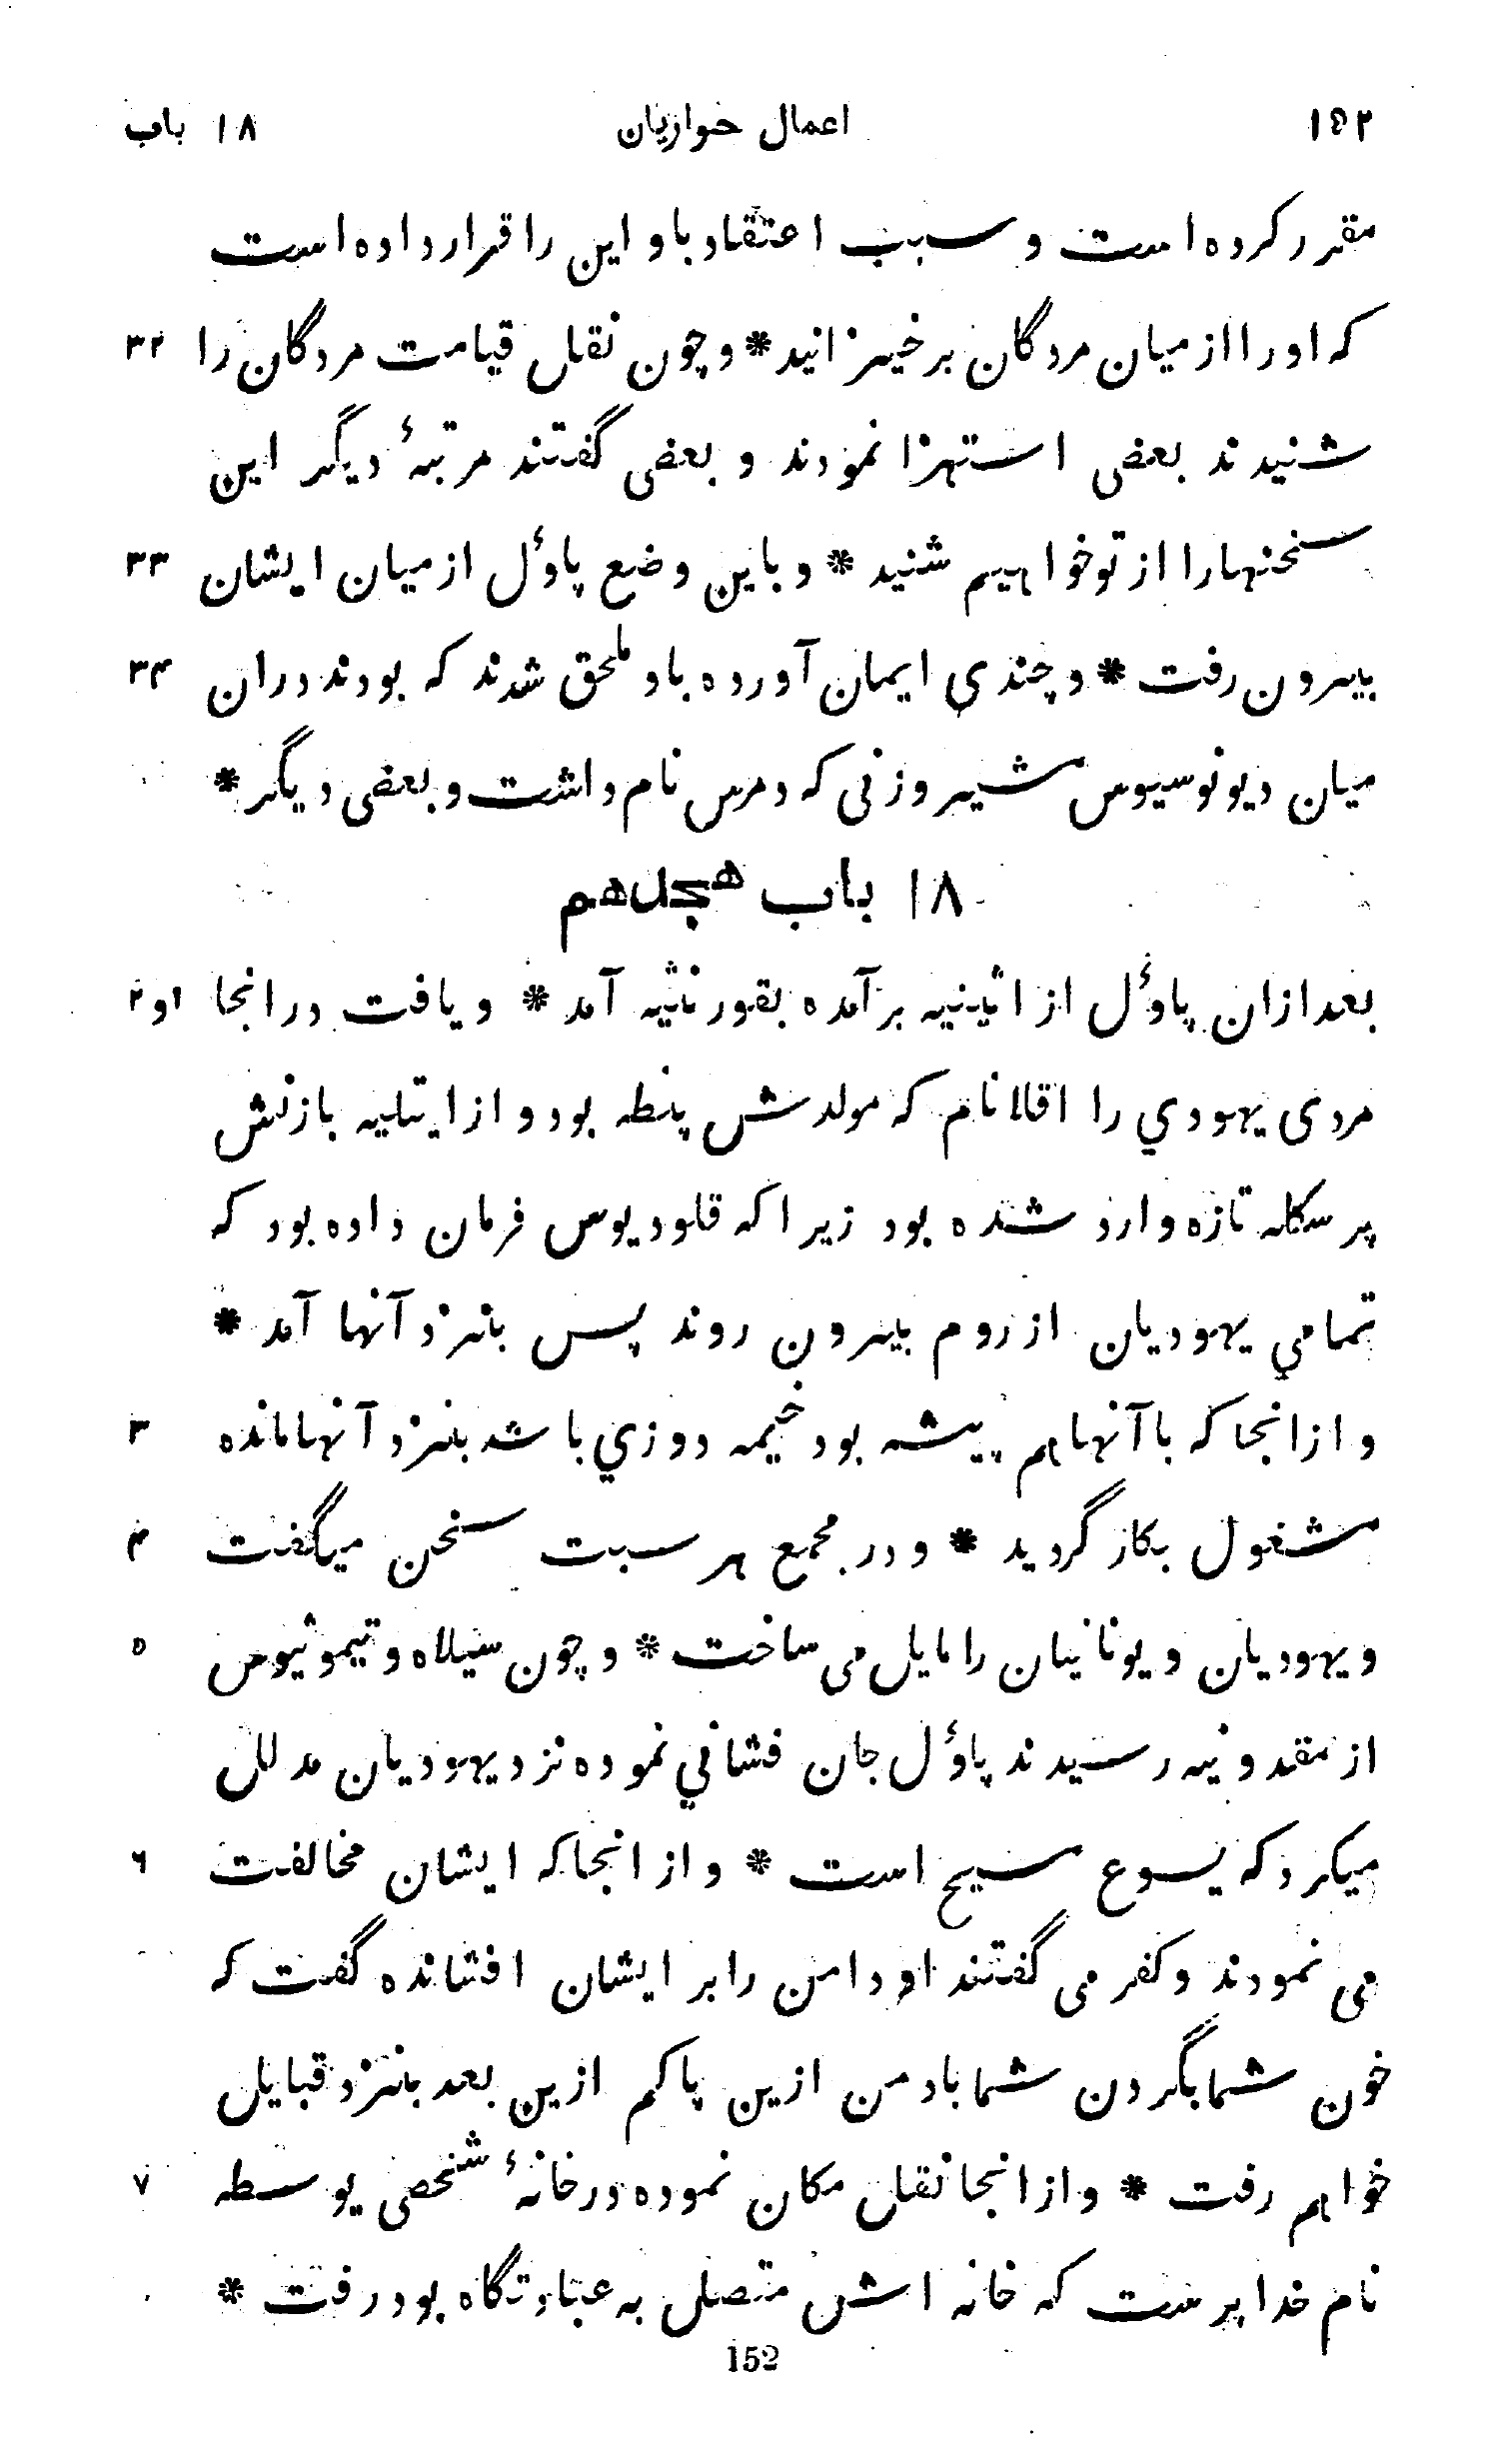 ۱۵۲ اعمال حواریان ۱۸ باب
مقرر کرده است و سبب اعتقاد باو این را قرار داده است
که اورا از میان مردگان برخیزانید * و چون نقل قیامت مردگان را ۳۲
شنیدند بعضی استهزا نمودند و بعضی گفتند مرتبهٔ دیگر این
سخنهارا از تو خواهیم شنید * و باین وضع پاؤل از میان ایشان ۳۳
بیرون رفت * و چندي ایمان آورده باو ملحق شدند که بودند دران ۳۴
میان دیونوسیوس شیر و زنی که دمرس نام داشت و بعضی دیگر *
۱۸ باب هجدهم
بعد ازان پاؤل از اثینیه برآمده بقورنثیه آمد * و یافت درانجا ۱و۲
مردی یهودي را اقلا نام که مولدش پنطه بود و از ایتلیه بازنش
پرسکله تازه وارد شده بود زیرا که قلودیوس فرمان داده بود که
تمامي یهودیان از روم بیرون روند پس بنزد آنها آمد *
و ازانجا که با آنها هم پیشه بود خیمه دوزي باشد بنزد آنها مانده ۳
مشغول بکار گردید * و در مجمع هر سبت سخن میگفت ۴
و یهودیان و یونانیان را مایل می ساخت * و چون سیلاه و تیموثیوس ۵
از مقدونیه رسیدند پاؤل جان فشاني نموده نزد یهودیان مدلل
میکرد که یسوع مسیح است * و از انجا که ایشان مخالفت ۶
می نمودند و کفر می گفتند او دامن را بر ایشان افشانده گفت که
خون شما بگردن شما باد من ازین پاکم ازین بعد بنزد قبایل
خواهم رفت * و از انجا نقل مکان نموده در خانهٔ شخصی یوسطه ۷
نام خدا پرست که خانه اش متصل به عبادتگاه بود رفت *
152